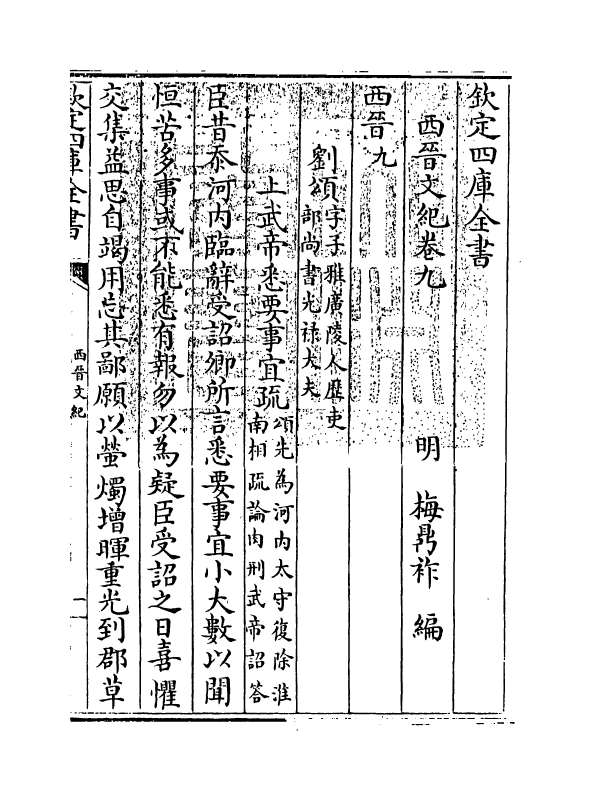 欽定四庫全書
西晉文紀卷九
明 梅鼎祚 編
西晉九
劉頌字子雅廣陵人歷吏
部尚書光祿大夫
上武帝悉要事宜疏頌先為河內太守復除淮
南相疏論肉刑武帝詔答
臣昔忝河內臨辭受詔卿所言悉要事宜小大數以聞
恒苦多事或不能悉有報勿以為疑臣受詔之日喜懼
交集益思自竭用忘其鄙願以螢燭增暉重光到郡草
欽定四庫全書
西晉文紀
一